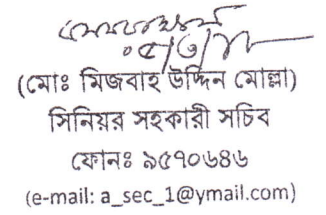 (মোঃ মিজবাহ উদ্দিন মোল্লা)
সিনিয়র সহকারী সচিব
ফোনঃ ৯৫৭০৬৪৬
(e-mail: a_sec_1@ymail.com)